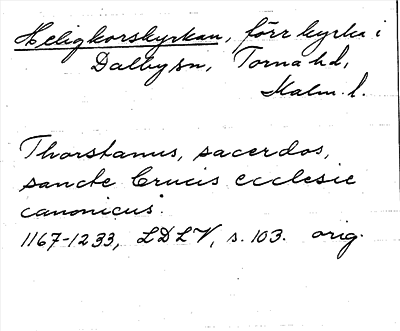 Heligkorskyrkan, förr kyrka i
Dalby sn, Torna hd,
Malm. l.
Thorstanus, sacerdos,
sancte Crucis ecclesie
canonicus.
1167-1233, LDLV, s. 103. orig.